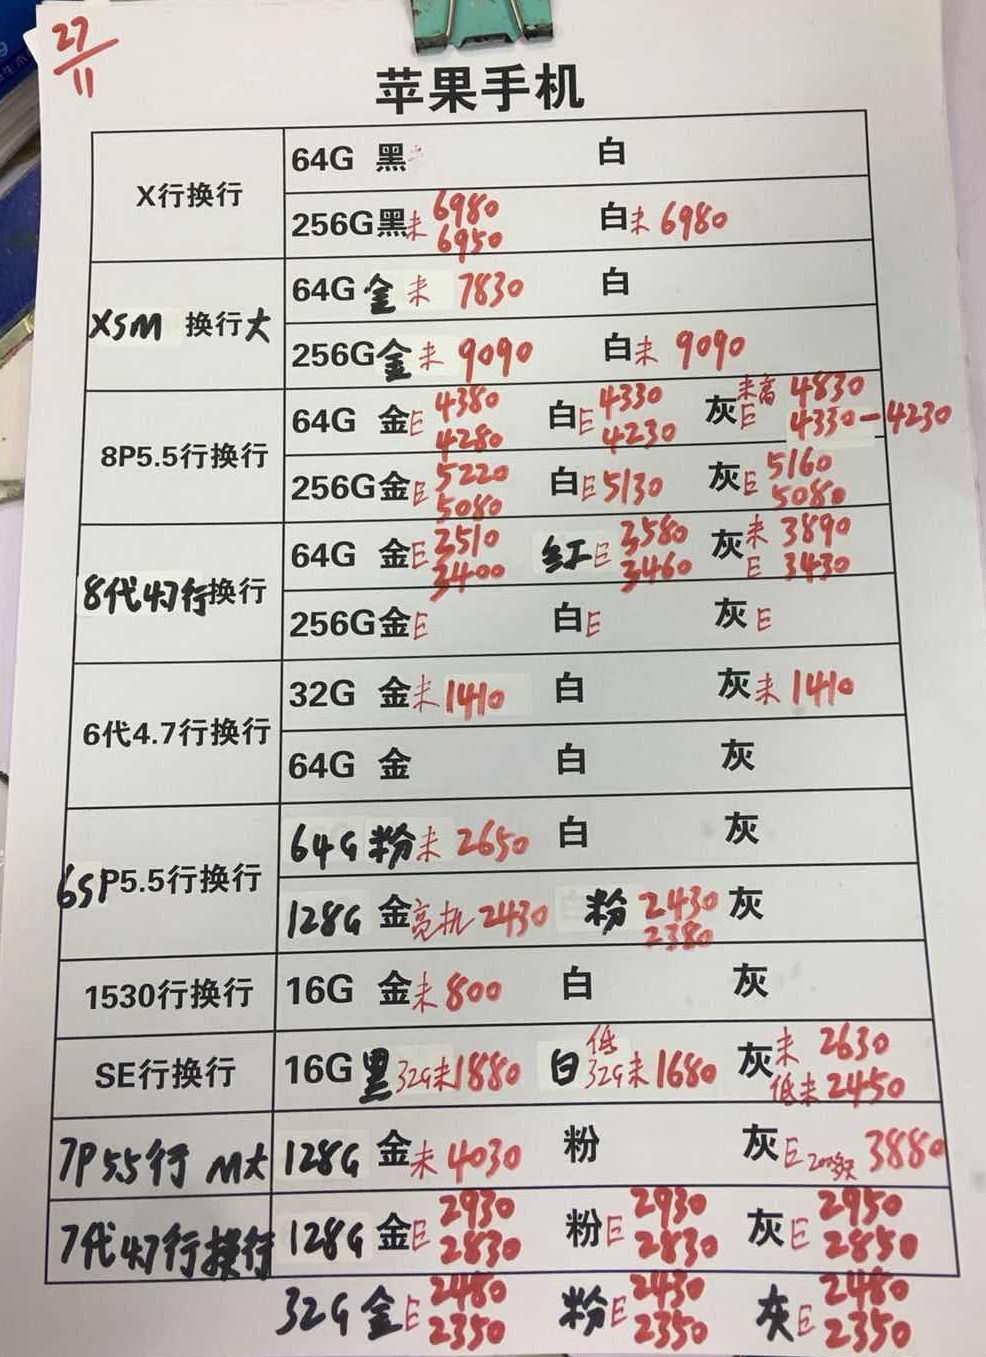 27
11
苹果手机
X行换行 64G 黑 白
256G黑未 6980 白未 6980
6950
XSM 换行大 64G 金未 7830 白
256G金未 9090 白未 9090
8P5.5行换行 64G 金E 4380 白E 4330 灰未高 4830
4280 4230 E 4330-4230
256G金E 5220 白E 5130 灰E 5160
5080 5080
8代4.7行换行 64G 金E 3510 红E 3580 灰未 3890
3400 3460 E 3430
256G金E 白E 灰E
6代4.7行换行 32G 金未1410 白 灰未1410
64G 金 白 灰
6SP5.5行换行 64G 粉未 2650 白 灰
128G 金亮机2430 粉 2430 灰
2380
1530行换行 16G 金未800 白 灰
SE行换行 16G 黑32G未1880 白低32G未1680 灰未 2630
低未2450
7P5.5行 M大 128G 金未4030 粉 灰E 3880
7代4.7行换行 128G 金E 2930 粉E 2930 灰E 2950
2830 2830 2850
32G 金E 2480 粉E 2430 灰E 2480
2350 2350 2350